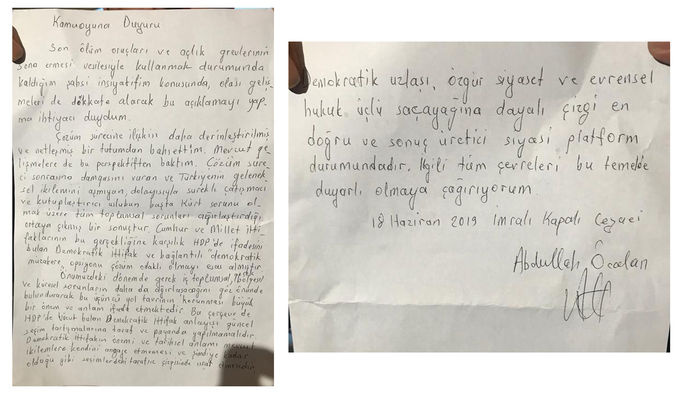 Kamuoyuna Duyuru
Son ölüm oruçları ve açlık grevlerinin
sona ermesi vesilesiyle kullanmak durumunda
kaldığım şahsi insiyatifim konusunda, olası geliş-
meleri de dikkate alarak bu açıklamayı yap-
ma ihtiyacı duydum.
Çözüm sürecine ilişkin daha derinleştirilmiş
ve netleşmiş bir tutumdan bahsettim. Mevcut ge-
lişmelere de bu perspektiften baktım. Çözüm süre-
ci sonrasına damgasını vuran ve Türkiyenin gelenek-
sel ikilemini aşmıyan, dolayısıyla sürekli çatışmacı
ve kutuplaştırıcı üslubun başta Kürt sorunu ol-
mak üzere tüm toplumsal sorunları ağırlaştırdığı
ortaya çıkmış bir sonuçtur. Cumhur ve Millet itti-
faklarının bu gerçekliğine karşılık HDP'de ifadesini
bulan Demokratik İttifak ve bağlantılı "demokratik
müzakere" opsiyonu çözüm odaklı olmayı esas almıştır.
Önümüzdeki dönemde gerek iç toplumsal, bölgesel
ve küresel sorunların daha da ağırlaşacağını göz önünde
bulundurarak bu üçüncü yol tavrının korunması büyük
bir önem ve anlam ifade etmektedir. Bu çerçevede
HDP'de vücut bulan Demokratik İttifak anlayışı güncel
seçim tartışmalarına taraf ve payanda yapılmamalıdır.
Demokratik İttifakın önemi ve tarihsel anlamı mevcut
ikilemlere kendini angaje etmemesi ve şimdiye kadar
olduğu gibi seçimlerdeki tarafsız çizgisinde ısrar etmesidir.
Demokratik uzlaşı, özgür siyaset ve evrensel
hukuk üçlü saçayağına dayalı çizgi en
doğru ve sonuç üretici siyasi platform
durumundadır. İlgili tüm çevreleri bu temelde
duyarlı olmaya çağırıyorum.
18 Haziran 2019 İmralı Kapalı Cezaevi
Abdullah Öcalan